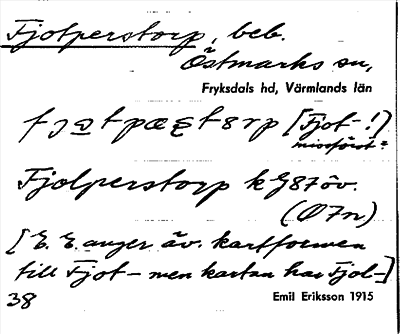 Fjolperstorp, beb.
Östmarks sn,
Fryksdals hd, Värmlands län
[Fjot-!)
missförst=
Fjolperstorp k G87 öv.
(Ø7n)
[E. E. anger äv. kartformen
till Fjot- men kartan har Fjol-]
38 Emil Eriksson 1915